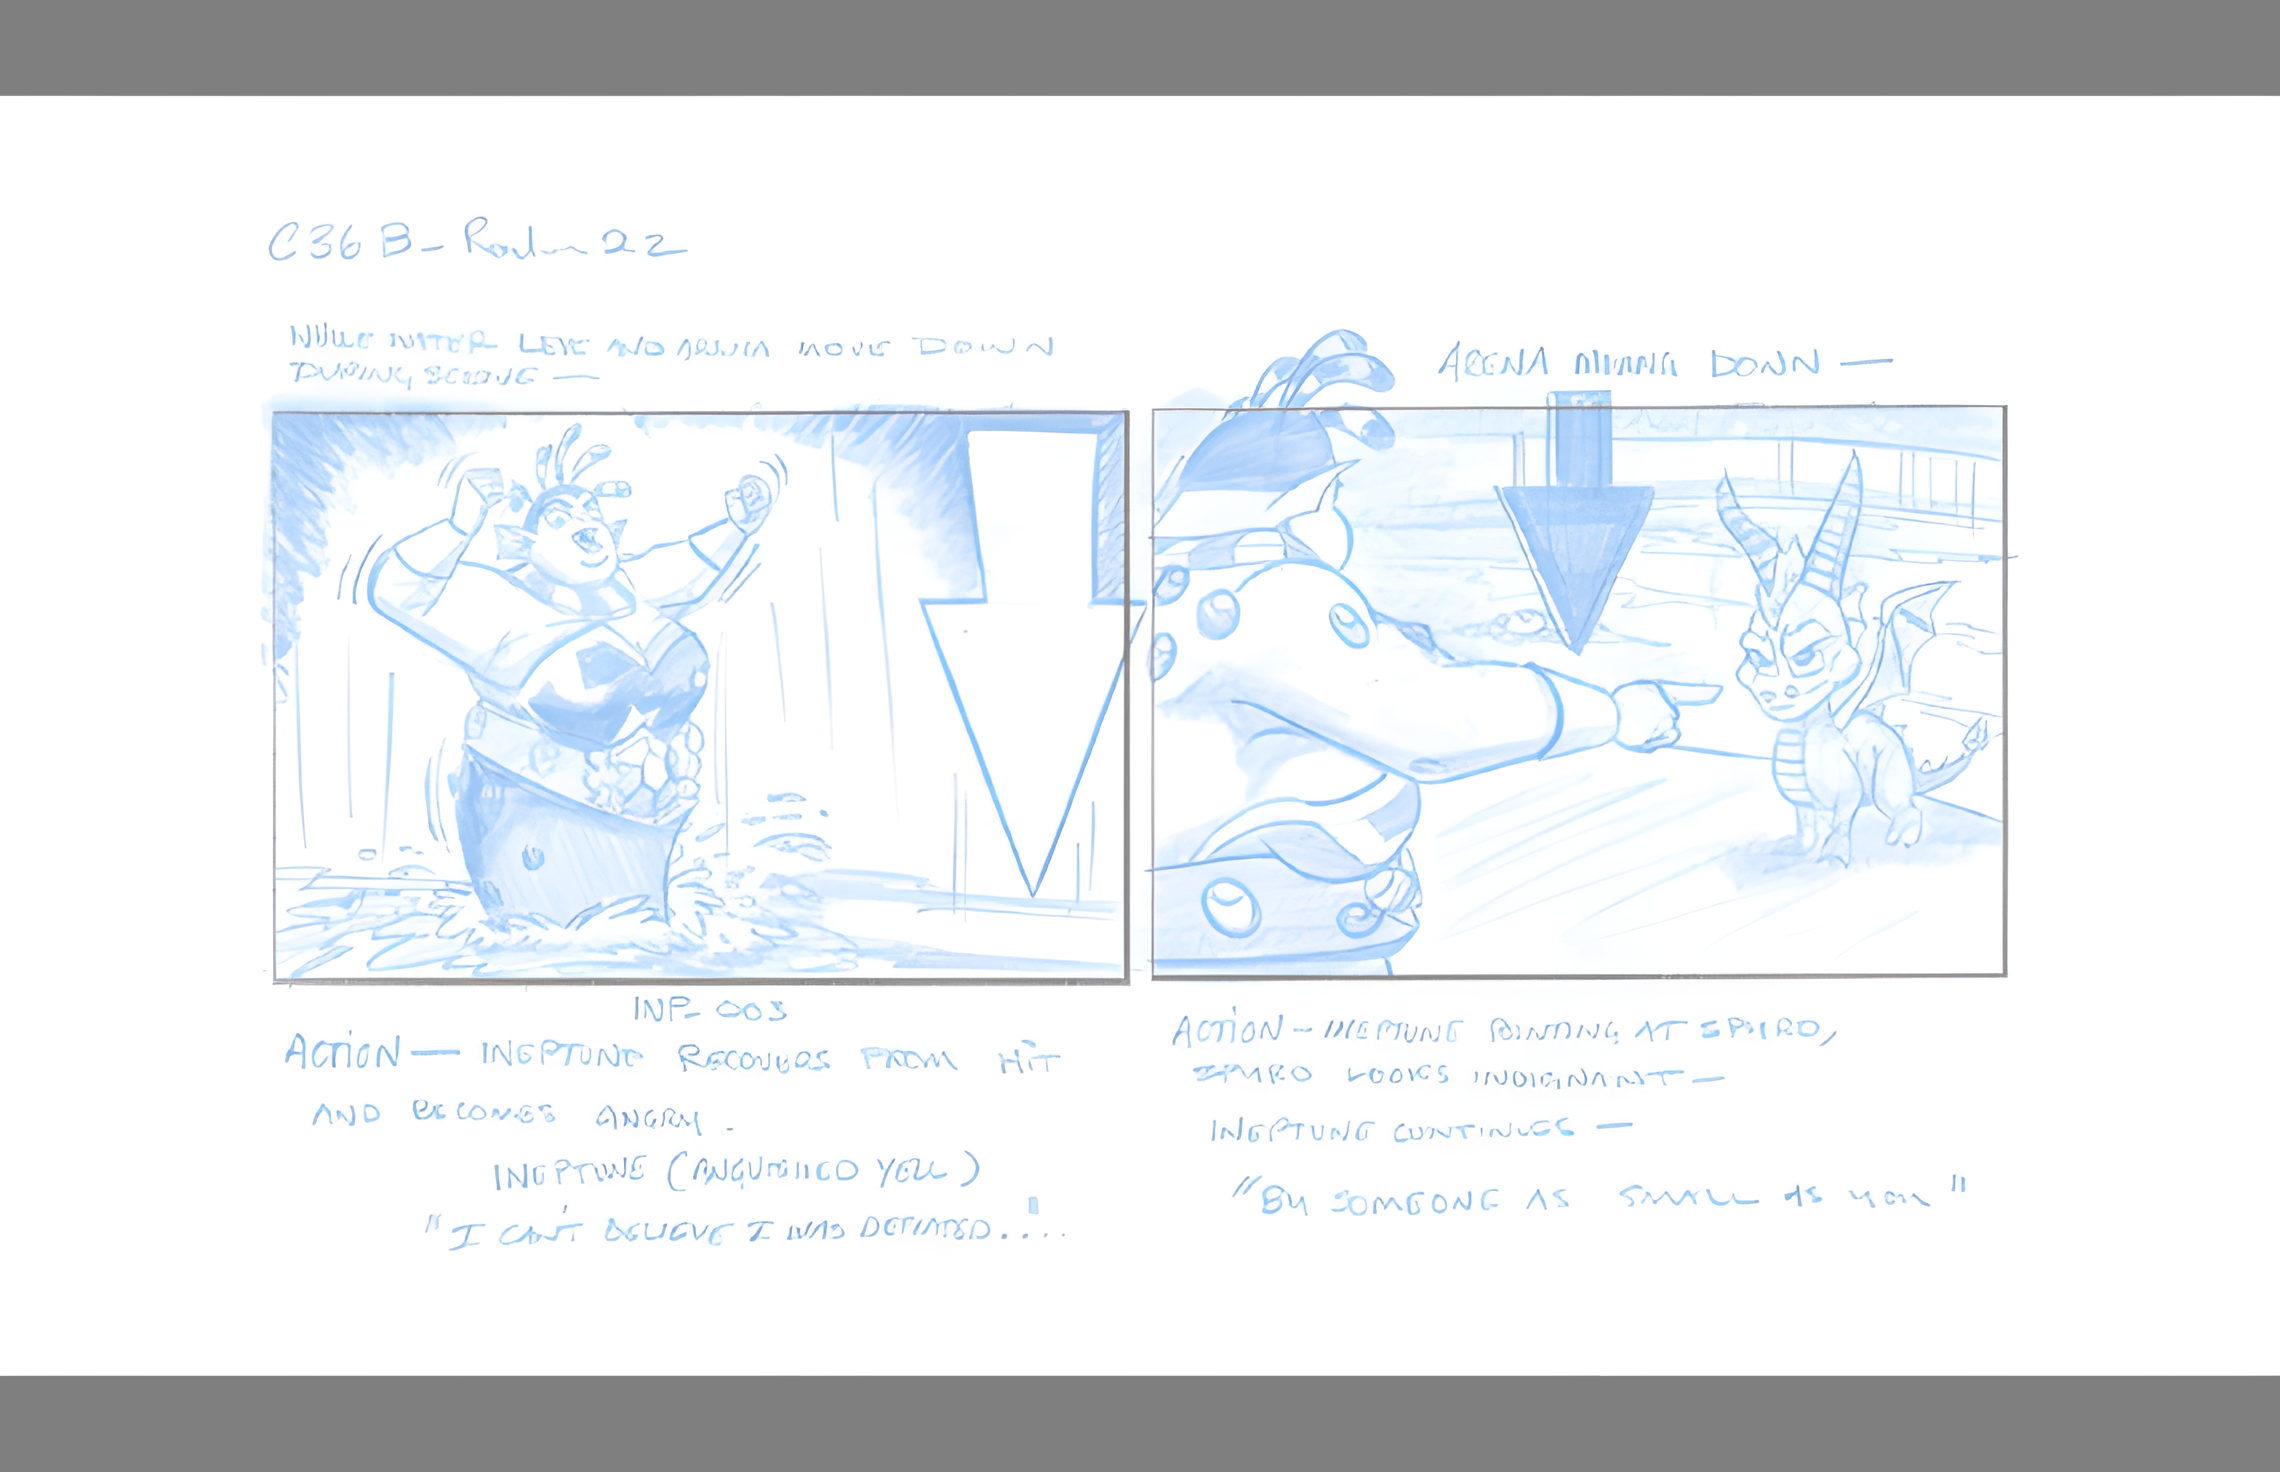 C36B-
WHILE WATER LEVE AND ARENA MOVE DOWN
DURING SCENE —
INP-003
ACTION — INEPTUNE RECOVERS FROM HIT
AND BECOMES ANGRY.
INEPTUNE (ANGUISHED YELL)
"I CAN'T BELIEVE I WAS DEFEATED....
ARENA DOWN —
ACTION — INEPTUNE POINTING AT SPYRO,
SPYRO LOOKS INDIGNANT —
INEPTUNE CONTINUES —
"BY SOMEONE AS SMALL AS YOU"